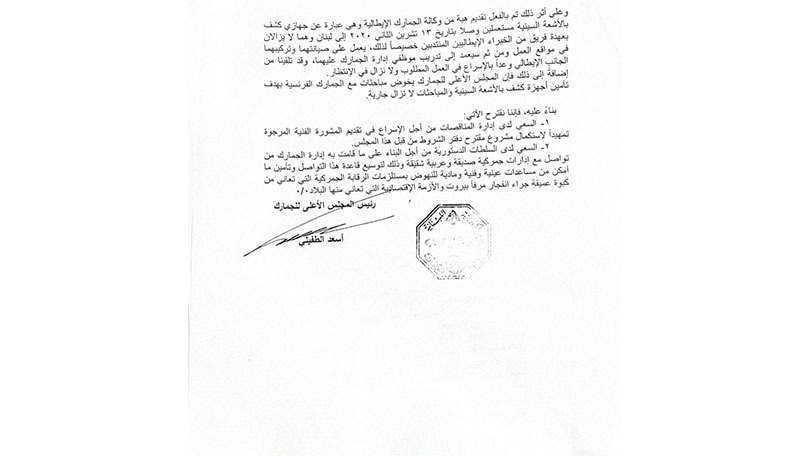 وعلى أثر ذلك تم بالفعل تقديم هبة من وكالة الجمارك الإيطالية وهي عبارة عن جهازي كشف
بالأشعة السينية مستعملين وصلا بتاريخ ١٣ تشرين الثاني ٢٠٢٠ إلى لبنان وهما لا يزالان
بعهدة فريق من الخبراء الإيطاليين المنتدبين خصيصاً لذلك، يعمل على صيانتهما وتركيبهما
في مواقع العمل ومن ثم سيعمد إلى تدريب موظفي إدارة الجمارك عليهما، وقد تلقينا من
الجانب الإيطالي وعداً بالإسراع في العمل المطلوب ولا نزال في الإنتظار.
إضافةً إلى ذلك فإن المجلس الأعلى للجمارك يخوض مباحثات مع الجمارك الفرنسية بهدف
تأمين أجهزة كشف بالأشعة السينية والمباحثات لا تزال جارية.
بناءً عليه، فإننا نقترح الآتي:
١- السعي لدى إدارة المناقصات من أجل الإسراع في تقديم المشورة الفنية المرجوة
تمهيداً لاستكمال مشروع مقترح دفتر الشروط من قبل هذا المجلس.
٢- السعي لدى السلطات الدستورية من أجل البناء على ما قامت به إدارة الجمارك من
تواصل مع إدارات جمركية صديقة وعربية شقيقة وذلك لتوسيع قاعدة هذا التواصل وتأمين ما
أمكن من مساعدات عينية وفنية ومادية للنهوض بمستلزمات الرقابة الجمركية التي تعاني من
كبوة عميقة جراء انفجار مرفأ بيروت والأزمة الإقتصادية التي تعاني منها البلاد./٠
رئيس المجلس الأعلى للجمارك
أسعد الطفيلي